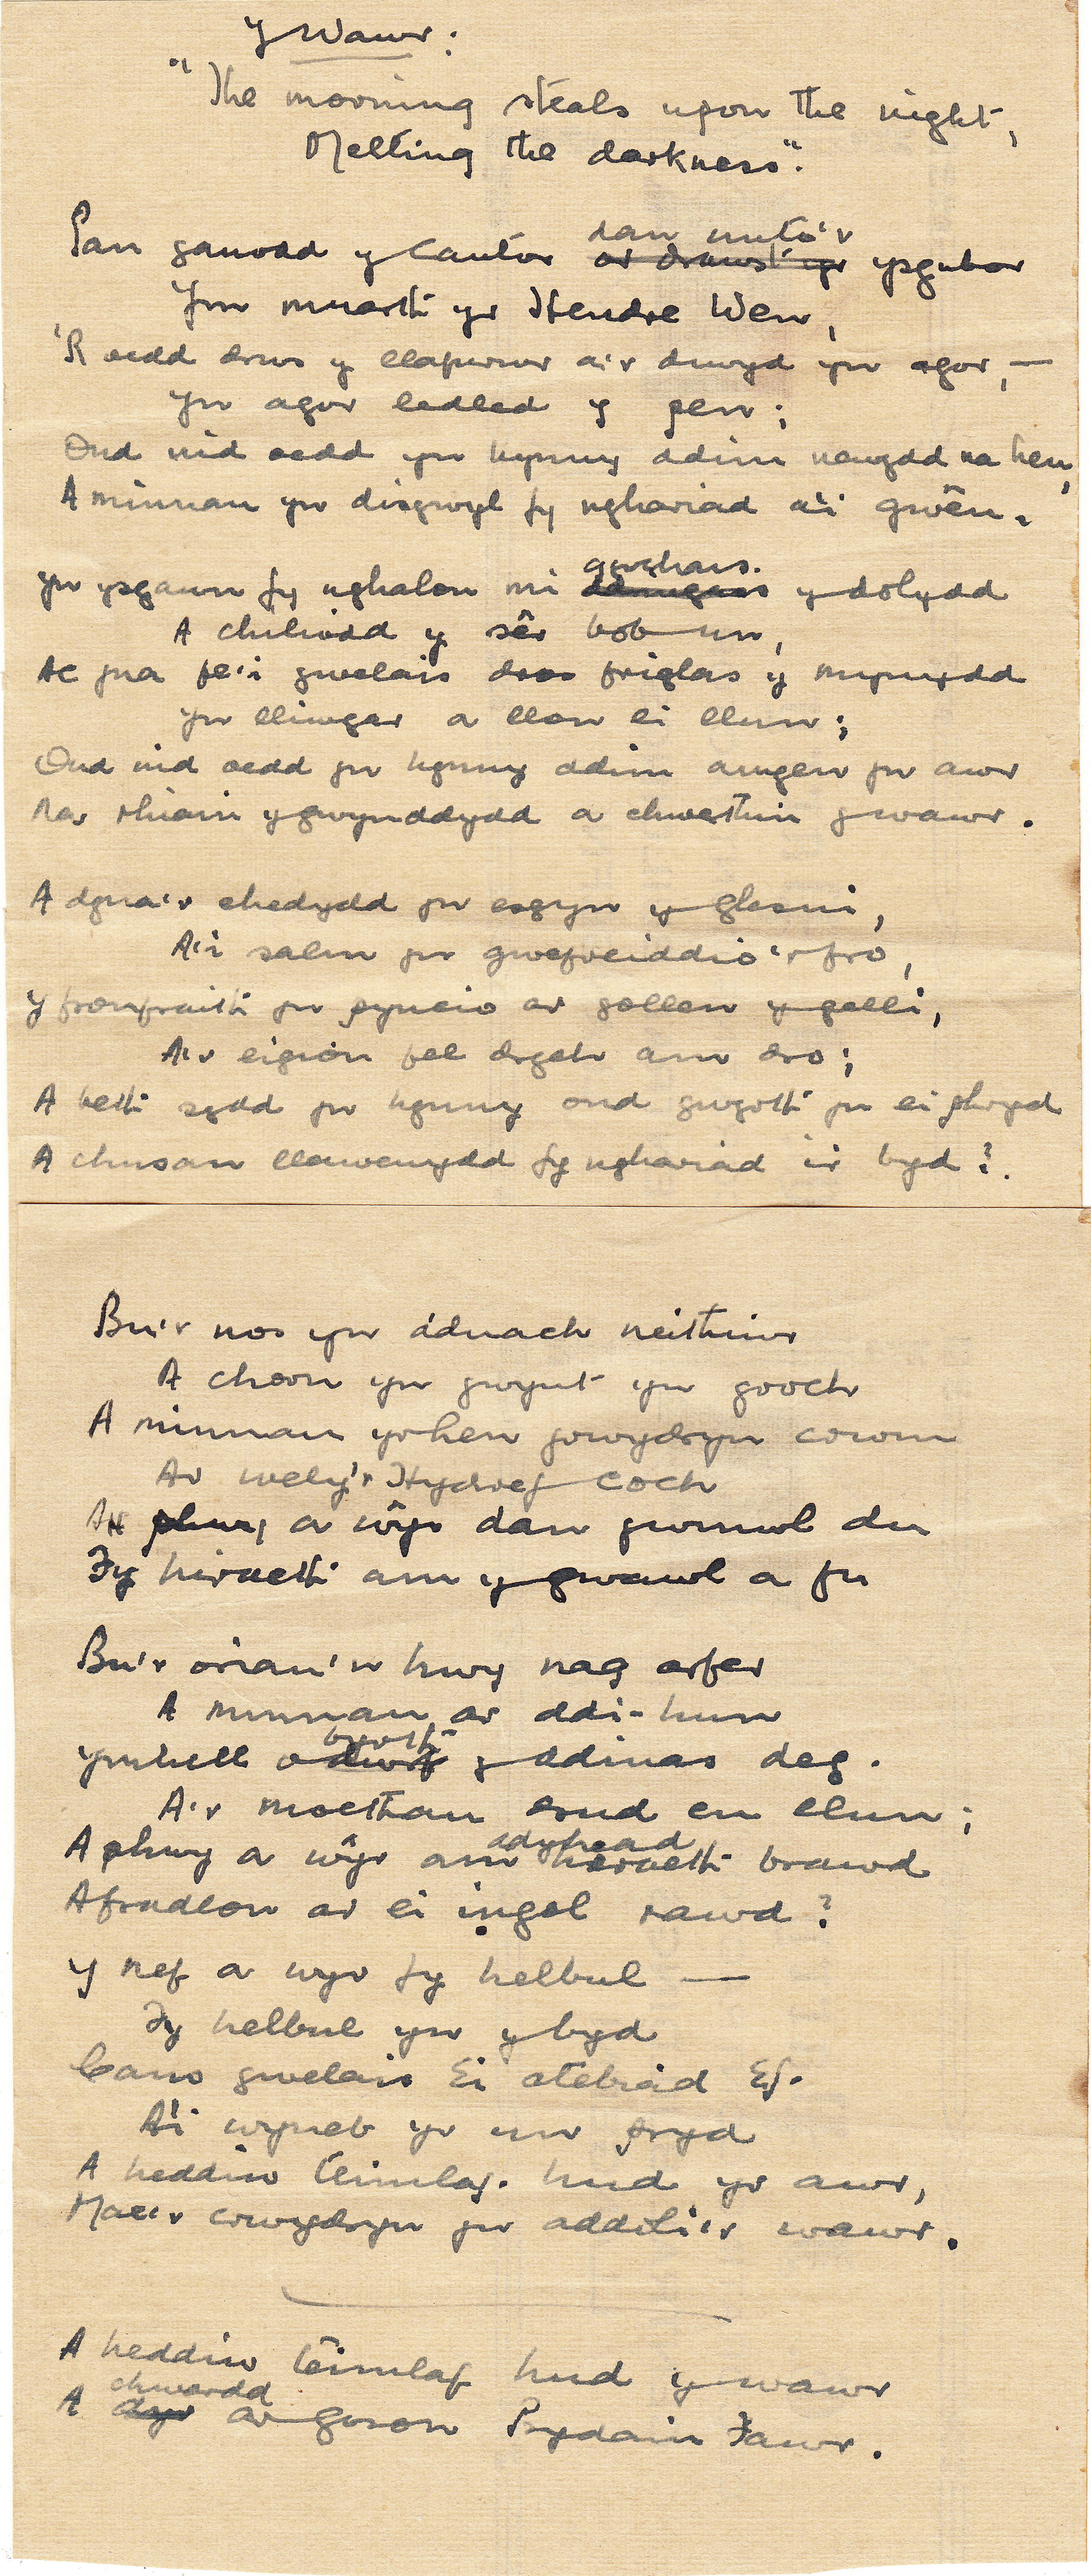 Y Wawr:
"The morning steals upon the night,
Melting the darkness".
dan unto'r
Pan ganodd y cantor ar drawst yr ysgubor
Ym muarth yr Hendre Wen,
'R oedd drws y llafurwr a'r diwyd yn agor, —
Yn agor lediad y pen;
Ond nid oedd yn hynny ddim newydd na hen,
A minnau yn disgwyl fy nghariad a'i gwên.
gyrchais.
Yn ysgawn fy nghalon mi y dolydd
A chiliodd y sêr bob un,
Ac yna fe'i gwelais dros friglas y mynydd
Yn lliwgar a llon ei llun;
Ond nid oedd yn hynny ddim amgen yn awr
Na rhiain y gwynddydd a chwerthin y wawr.
A dyna'r ehedydd yn esgyn y glesni,
A'i salm yn gwefreiddio'r fro,
Y fronfraith yn pyncio ar gollen y gelli,
A'r eigion fel drych am dro;
A beth sydd yn hynny ond gwyrth yn ei phryd
A chusan llawenydd fy nghariad i'r byd?.
Bu'r nos yn dduach neithiwr
A chorn yn gwynt yn groch
A minnau yr hen grwydryn crwm
Ar wely'r Hydref coch
phwy a ŵyr dan gwmwl du
Fy hiraeth am y gwawl a fu
Bu'r oriau'n hwy nag arfer
A minnau ar ddi-hun
byrth
Ymhell o dwrf y ddinas deg.
A'r moethau drud eu llun;
adyhead
A phwy a ŵyr am hiraeth brawd
A frudion ar ei ingol rawd?
Y nef a wyr fy helbul —
Fy helbul yn y byd
Cans gwelais Ei atebiad Ef.
A'i wyneb yr un pryd
A heddiw teimlaf. hud yr awr,
Mae'r crwydryn yn addoli'r wawr.
A heddiw teimlaf hud y wawr
chwardd
A dyr ar goron Prydain Fawr.